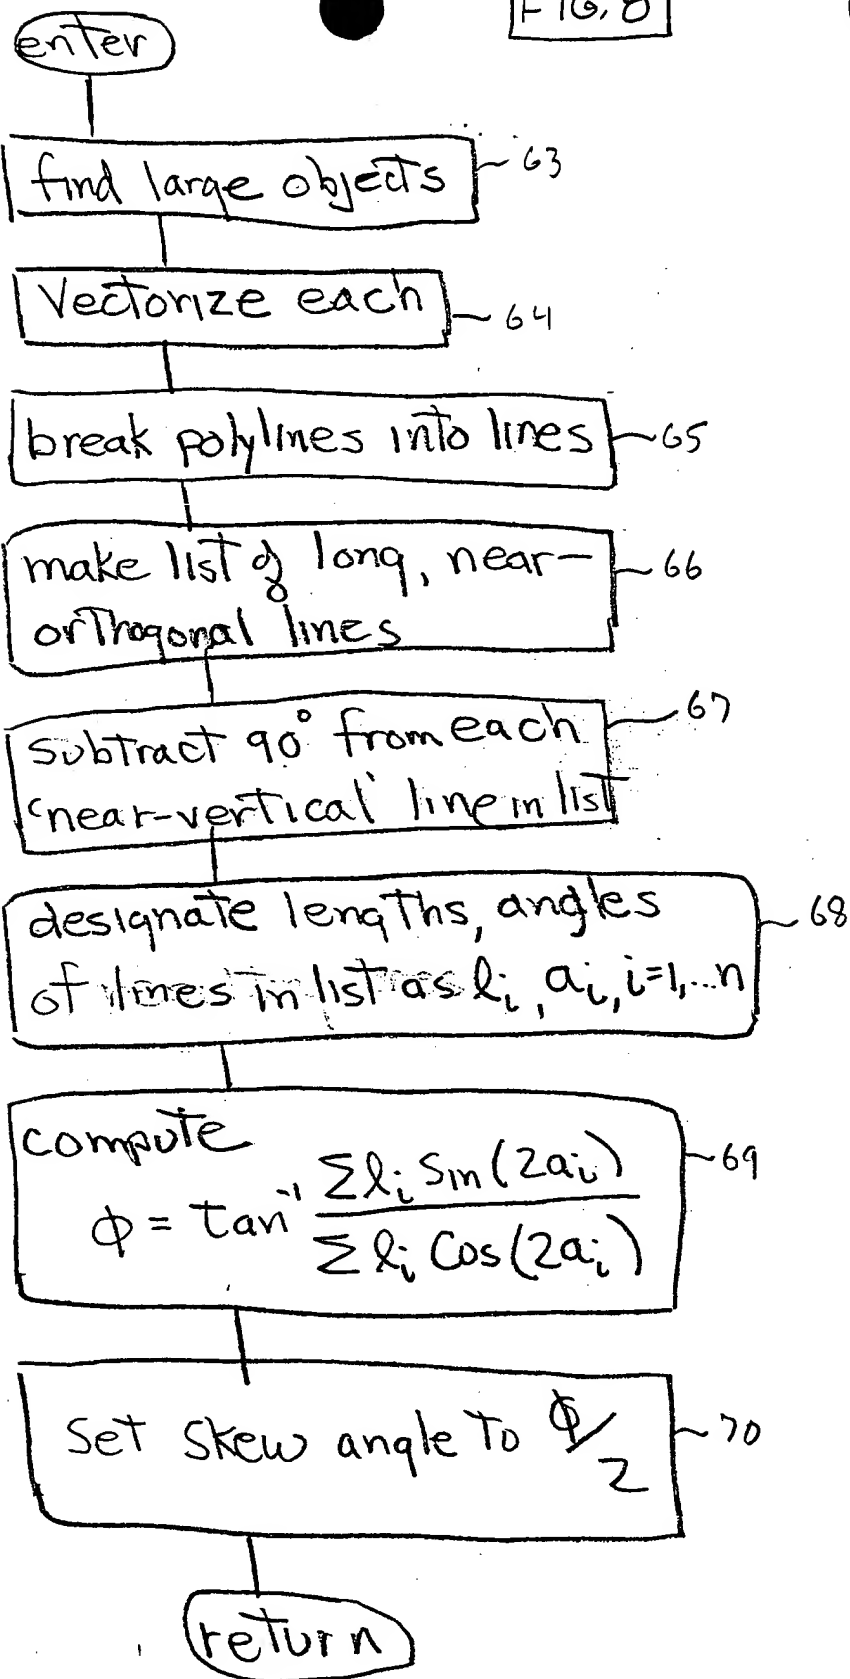 FIG. 8
enter
find large objects
63
Vectorize each
64
break polylines into lines
65
make list of long, near-
orthogonal lines
66
subtract 90° from each
'near-vertical' line in list
67
designate lengths, angles
of lines in list as ℓi, ai, i=1,...n
68
compute
ϕ = tan⁻¹ Σℓi Sin(2ai) / Σℓi Cos(2ai)
69
Set skew angle to ϕ/2
70
return